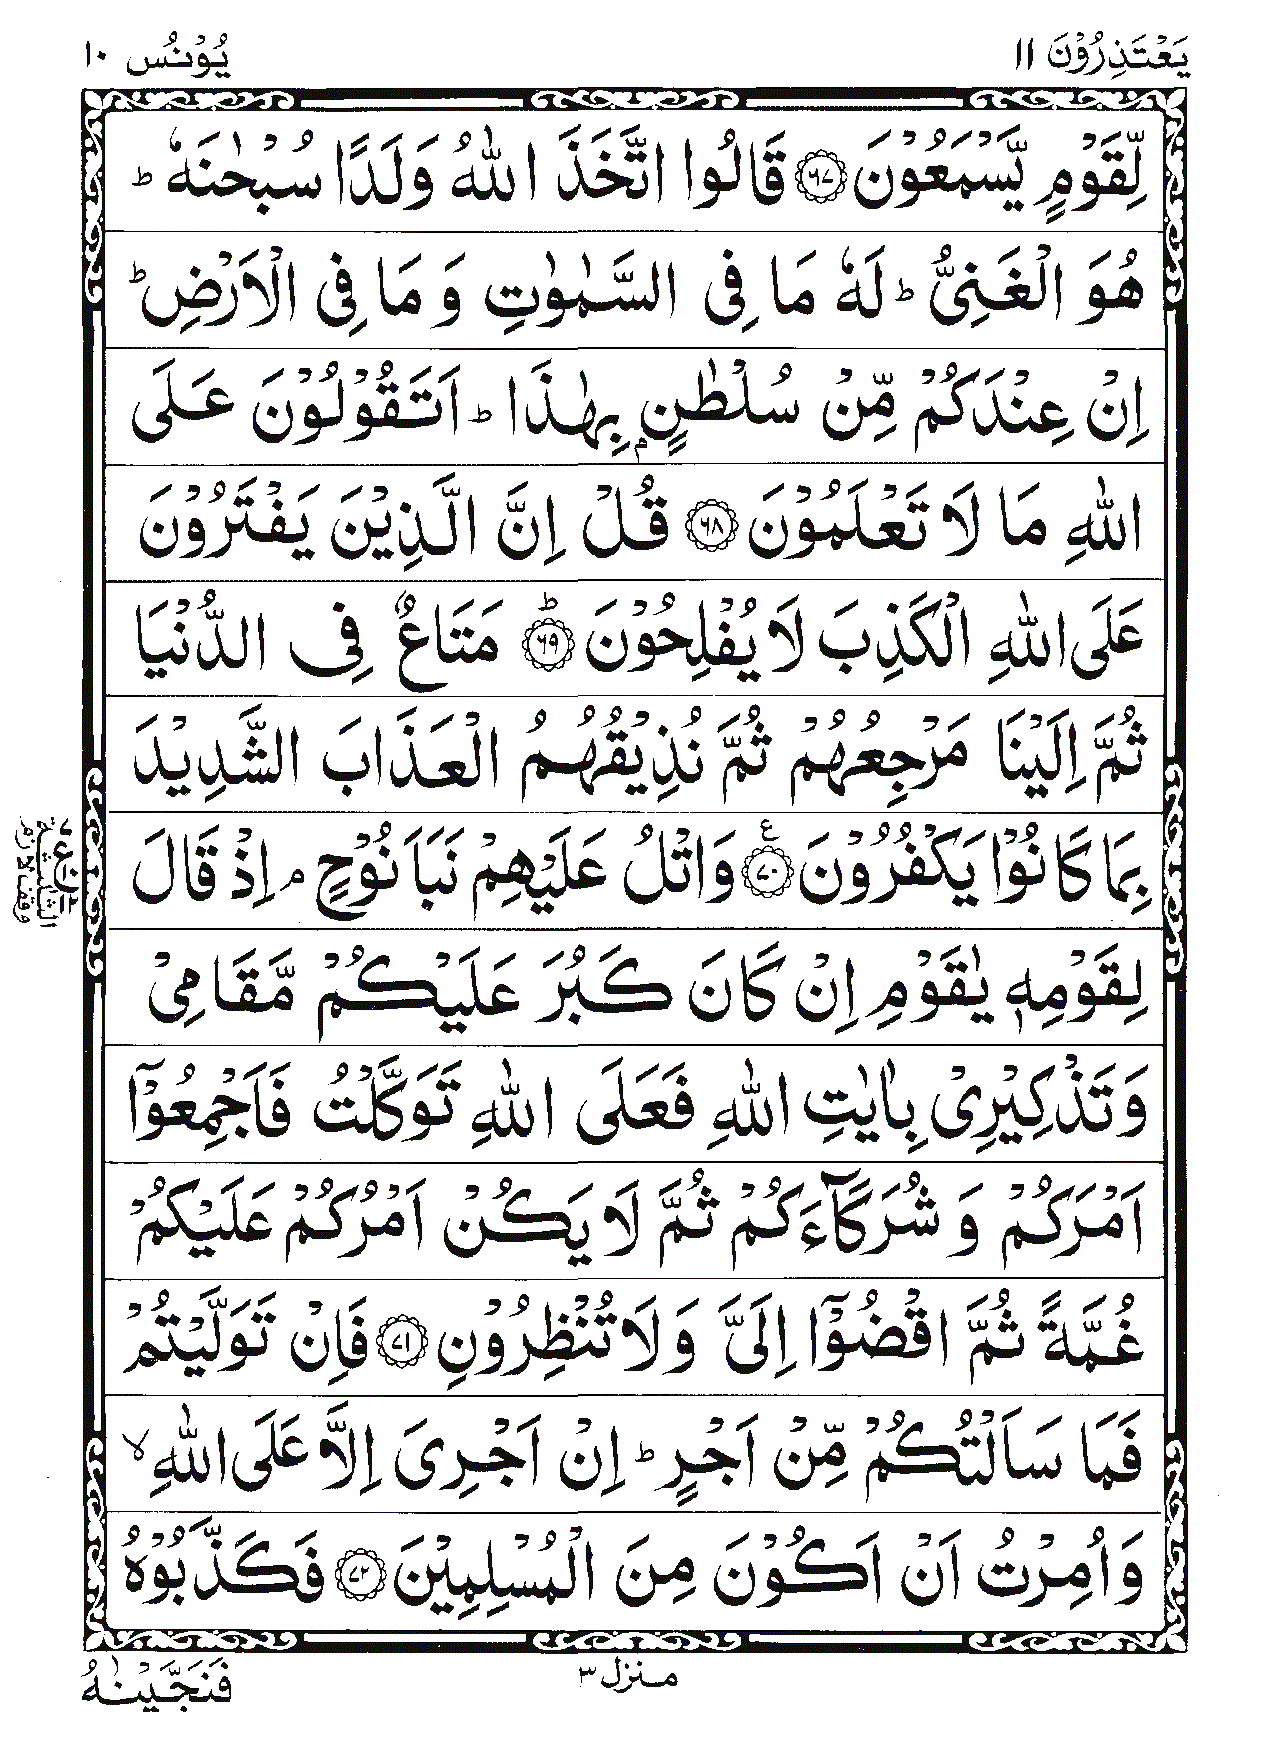 يَعْتَذِرُوْنَ ۱۱
يُوْنُس ۱۰
لِّقَوْمٍ يَّسْمَعُوْنَ ﴿۶۷﴾ قَالُوا اتَّخَذَ اللّٰهُ وَلَدًا سُبْحٰنَهٗ ؕ
هُوَ الْغَنِىُّ ؕ لَهٗ مَا فِى السَّمٰوٰتِ وَ مَا فِى الْاَرْضِ ؕ
اِنْ عِنْدَكُمْ مِّنْ سُلْطٰنٍۭ بِهٰذَا ؕ اَتَقُوْلُوْنَ عَلَى
اللّٰهِ مَا لَا تَعْلَمُوْنَ ﴿۶۸﴾ قُلْ اِنَّ الَّذِيْنَ يَفْتَرُوْنَ
عَلَى اللّٰهِ الْكَذِبَ لَا يُفْلِحُوْنَ ﴿۶۹﴾ؕ مَتَاعٌ فِى الدُّنْيَا
ثُمَّ اِلَيْنَا مَرْجِعُهُمْ ثُمَّ نُذِيْقُهُمُ الْعَذَابَ الشَّدِيْدَ
بِمَا كَانُوْا يَكْفُرُوْنَ ﴿۷۰﴾ع وَاتْلُ عَلَيْهِمْ نَبَاَ نُوْحٍ ۘ اِذْ قَالَ
لِقَوْمِهٖ يٰقَوْمِ اِنْ كَانَ كَبُرَ عَلَيْكُمْ مَّقَامِىْ
وَتَذْكِيْرِىْ بِاٰيٰتِ اللّٰهِ فَعَلَى اللّٰهِ تَوَكَّلْتُ فَاَجْمِعُوْۤا
اَمْرَكُمْ وَ شُرَكَآءَكُمْ ثُمَّ لَا يَكُنْ اَمْرُكُمْ عَلَيْكُمْ
غُمَّةً ثُمَّ اقْضُوْۤا اِلَىَّ وَ لَا تُنْظِرُوْنِ ﴿۷۱﴾ فَاِنْ تَوَلَّيْتُمْ
فَمَا سَاَلْتُكُمْ مِّنْ اَجْرٍ ؕ اِنْ اَجْرِىَ اِلَّا عَلَى اللّٰهِ ۙ
وَاُمِرْتُ اَنْ اَكُوْنَ مِنَ الْمُسْلِمِيْنَ ﴿۷۲﴾ فَكَذَّبُوْهُ
منزل ۳
فَنَجَّيْنٰهُ
الثلثة
وقف لازم